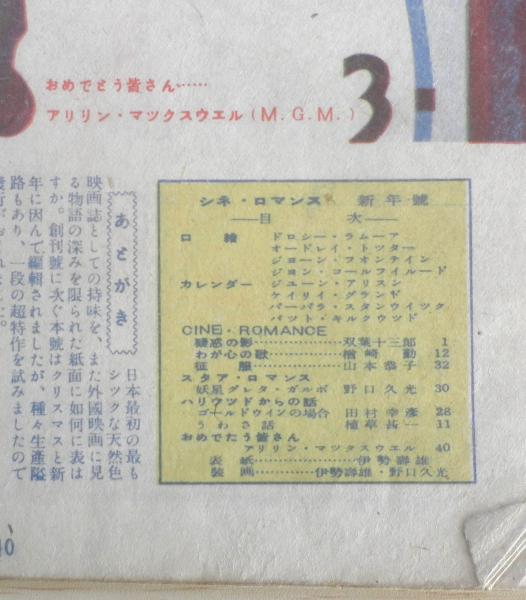 おめでとう皆さん……
アリリン・マツクスウエル(M.G.M.)
3・
シネ・ロマンス 新年號
――目 次――
口 繪 ドロシー・ラムーア
オードレイ・トツター
ジョーン・フオンテイン
ジョン・コールフイルード
カレンダー ジユーン・アリスン
ケイリイ・グランド
バーバラ・スタンウイツク
パツト・キルクウツド
CINE・ROMANCE
疑惑の影…………双葉十三郎 1
わが心の歌…………楢崎 勤 12
征 服…………山本恭子 32
スタア・ロマンス
妖星グレタ・ガルボ 野口久光 30
ハリウツドからの話
ゴールドウインの場合 田村幸彦 28
うわさ話 植草甚一 11
おめでたう皆さん
アリリン・マツクスウエル 40
表 紙…………伊勢壽雄
裝 画…………伊勢壽雄・野口久光
あとがき
日本最初の最も
シツクな天然色
映画誌としての持味を、また外國映画に見
る物語の深みを限られた紙面に如何に表は
すか。創刊號に次ぐ本號はクリスマスと新
年に因んで編輯されましたが、種々生産隘
路もあり、一段の超特作を試みましたので
40